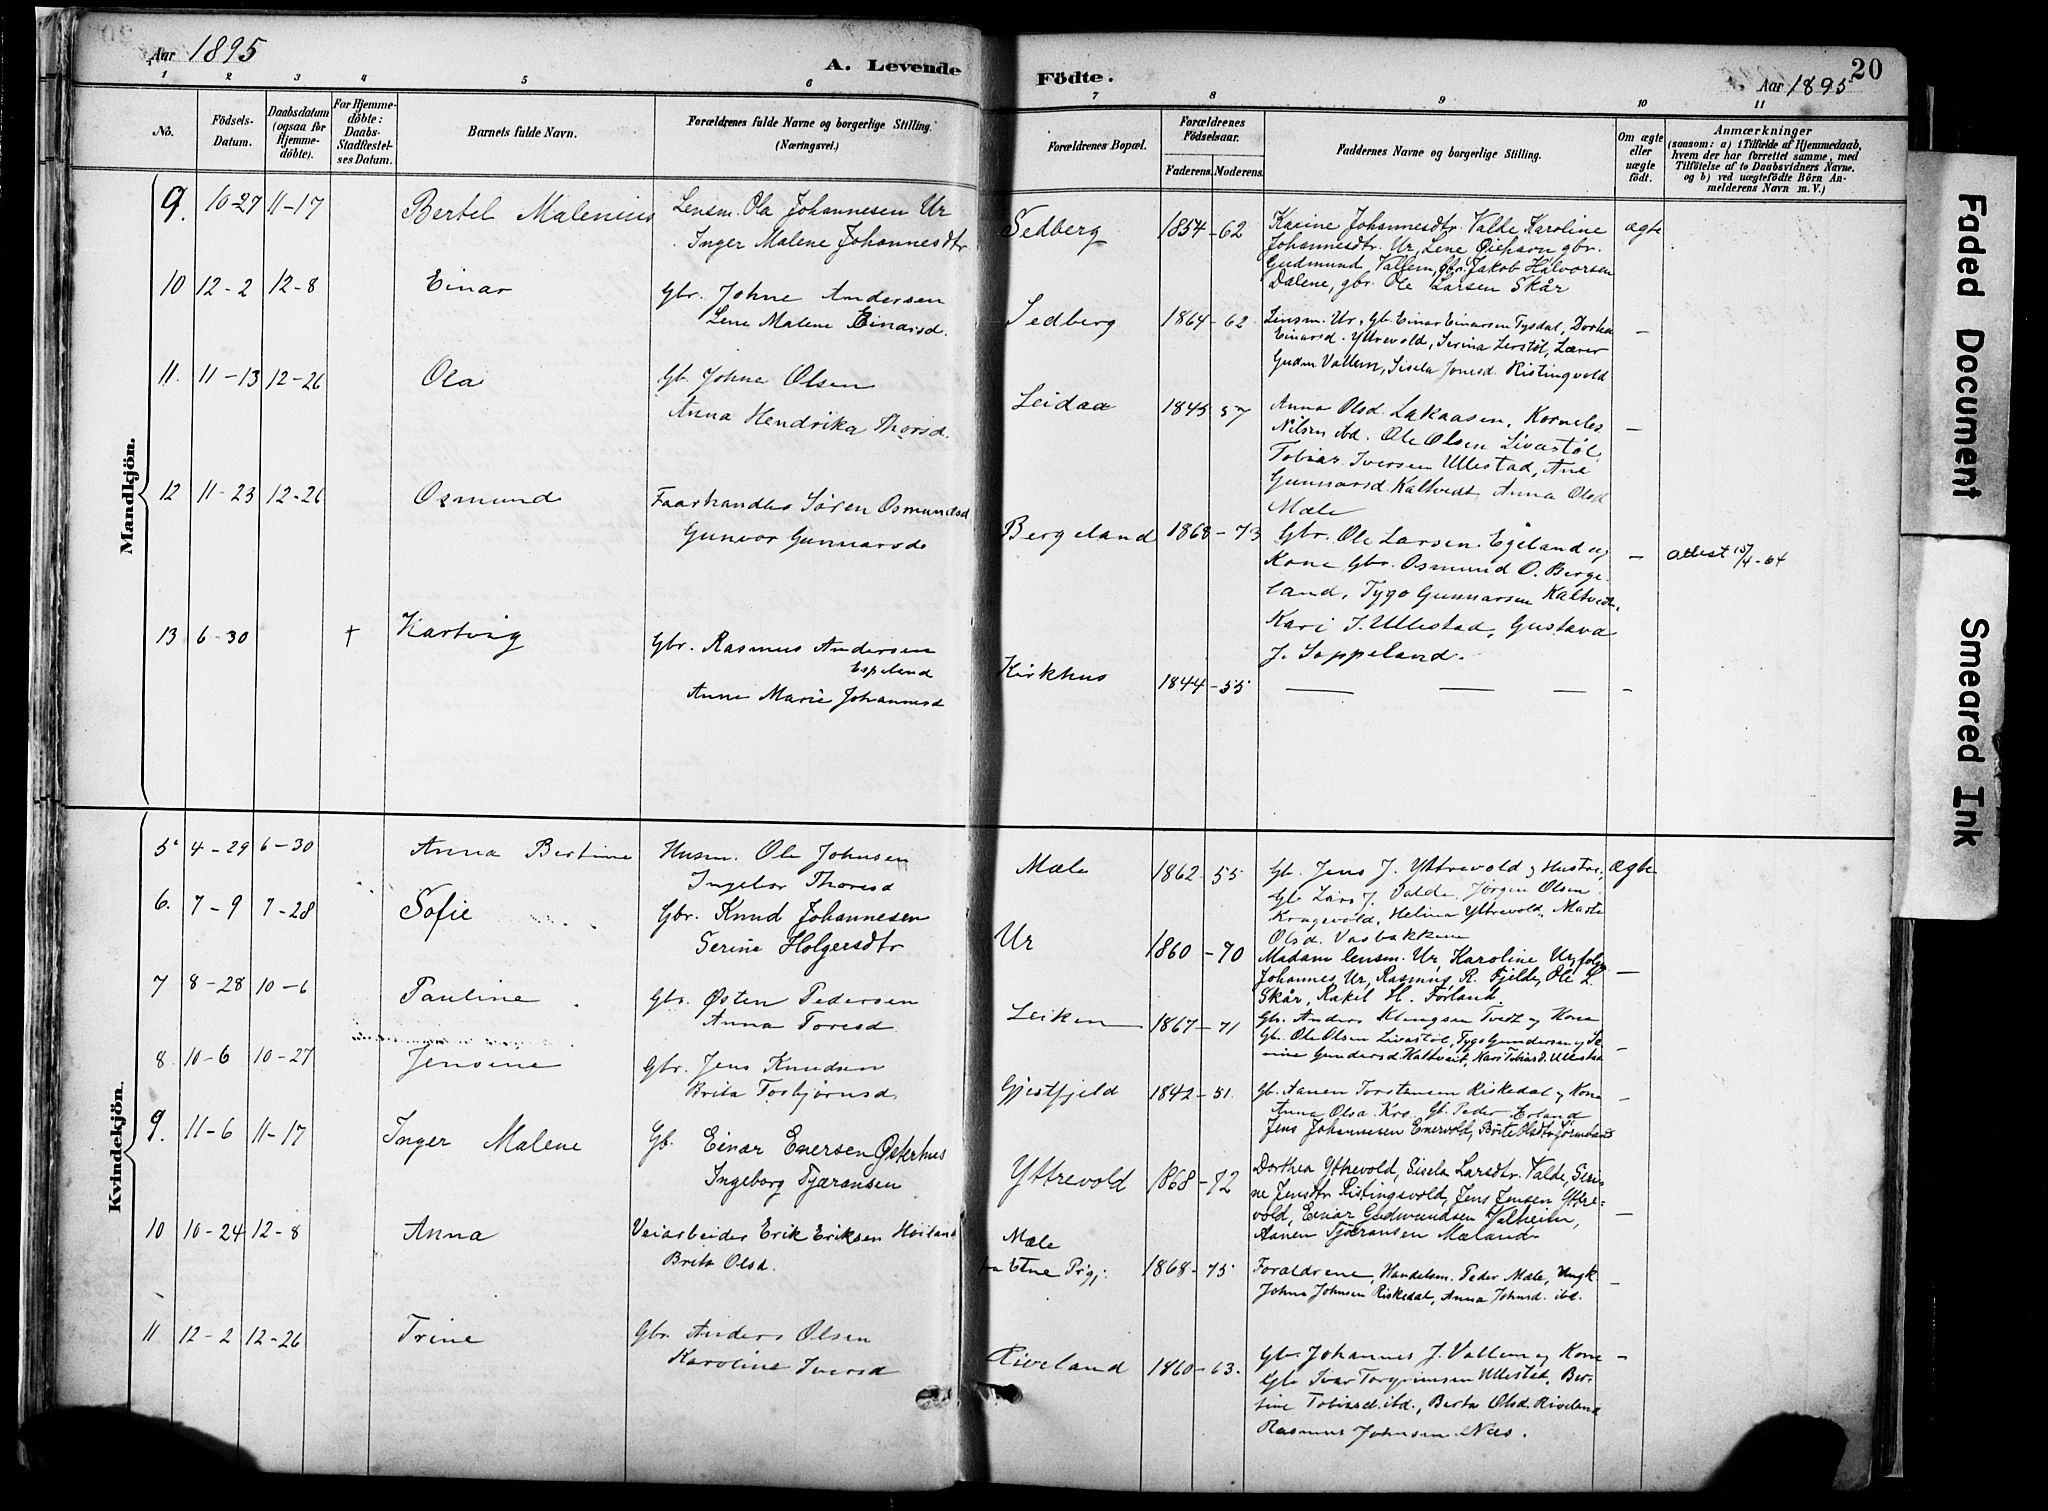 Aar 1895
A. Levende Födte.
20
Aar 1895
1 2 3 4 5 6 7 8 9 10 11
No.
Födsels-Datum.
Daabsdatum (ogsaa for Hjemme-döbte).
For Hjemme-döbte: Daabs-Stadfæstel-ses Datum.
Barnets fulde Navn.
Forældrenes fulde Navne og borgerlige Stilling. (Næringsvei.)
Forældrenes Bopæl.
Forældrenes Födselsaar.
Faderens. Moderens.
Faddernes Navne og borgerlige Stilling.
Om ægte eller uægte födt.
Anmærkninger
(saasom: a) i Tilfælde af Hjemmedaab,
hvem der har forrettet samme, med
Tilföielse af to Daabsvidners Navne.
og b) ved uægtefödte Börn An-
melderens Navn m. V.)
Mandkjön.
9. 10-27 11-17 Bertel Malenius Lensm. Ola Johannesen Ur
Inger Malene Johannesdtr
Sedberg 1854-62 Karine Johannesdtr. Valde Karoline ægte
Johannesdtr. Ur, Lene Øiehavn gbr.
Gudmund Vallem, gbr. Jakob Halvorsen
Dalene, gbr. Ole Larsen Skår
10 12-2 12-8 Einar Gbr. Johne Andersen
Lene Malene Einarsd.
Sedberg 1864-62 Lensm. Ur, Gb. Einar Einarsen Tysdal, Dorthea —
Einarsd. Yttrevold, Serina Lerstøl, Lærer
Gudm Vallem, Sisela Jonesd. Ristingvold
11. 11-13 12-26 Ola Gb. Johne Olsen
Anna Hendrika Thorsd.
Leidaa 1845 57 Anna Olsd. Lakaasen, Korneles —
Nilsen ibd. Ole Olsen Livastøl,
Tobias Iversen Ullestad, Ana
Gunnarsd. Kaltvedt, Anna Olsd
Mæle
12 11-23 12-26 Osmund Faarhandler Sören Osmundsd
Gunvor Gunnarsd.
Bergeland 1868-73 Gbr. Ole Larsen Egeland og — attest 15/4-64
Kone Gbr. Osmund O. Berge-
land, Tygo Gunnarsen Kaltvedt,
Kari I. Ullestad, Gustava
J. Soppeland.
13 6-30 + Hartvig Gbr. Rasmus Andersen
Espeland
Anne Marie Johannesd
Kirkhus 1844-55 — — — —
Kvindekjön.
5. 4-29 6-30 Anna Bertine Husm. Ole Johnsen
Ingebor Thoresd
Mæle 1862 55 Gb. Jens J. Yttrevold og Hustru, ægte
Gb Lars J. Valde, Jörgen Olsen
Kragevold, Helina Yttrevold, Marta
Olsd. Vasbakkene
6. 7-9 7-28 Sofie Gbr. Knud Johannesen
Serine Holgersdtr
Ur 1860-70 Madam lensm. Ur Karoline Ur, —
Johannes Ur, Rasmus R. Fjelde, Ole L.
Skår, Rakel H. Forland.
7 8-28 10-6 Pauline Gbr. Østen Pedersen
Anna Toresd
Leiken 1867-71 Gbr. Anders Tvedt og Kone —
Gb. Ole Olsen Livastøl, Tygo Gundersen og
Gundersd. Kaltveit, Kari Tobiasd. Ullestad
8. 10-6 10-27 Jensine Gbr. Jens Knudsen
Brita Torbjörnsd.
Gjestfjeld 1842-51. Gb. Aanen Torstensen Riskedal og Kona —
Anna Olsd Kro. Gb. Peder Erland
Jens Johannesen Enervold, Brite Olsdtr
9. 11-6 11-17 Inger Malene Gb. Einar Enersen Østerhus
Ingeborg Tjæransen
Yttrevold 1868-72 Dorthea Yttrevold, Sisela Larsdtr. Valde, Seri-
ne Jensdtr Ristingsvold, Jens Jensen Yttre-
vold, Einar Gudmundsen Valheim, —
Aanen Tjæransen Mæland.
10 10-24 12-8 Anna Veiarbeider Erik Eriksen Höiland
Brita Olsd.
Mæle
fra Etne Prgj. 1868-75 Forældrene, Handelsm. Peder Mæle, Ungk. —
Johne Johnsen Riskedal, Anna Johnsd. ibd.
11 12-2 12-26 Trine Gbr. Anders Olsen
Karoline Iversd
Riveland 1860-63. Gb. Johannes J. Vallem og Kone —
Gb Ivar Torgrimsen Ullestad, Ber-
tine Tobiasd. ibd., Berta Olsd. Riveland
Rasmus Johnsen Næs.
Faded Document
Smeared Ink